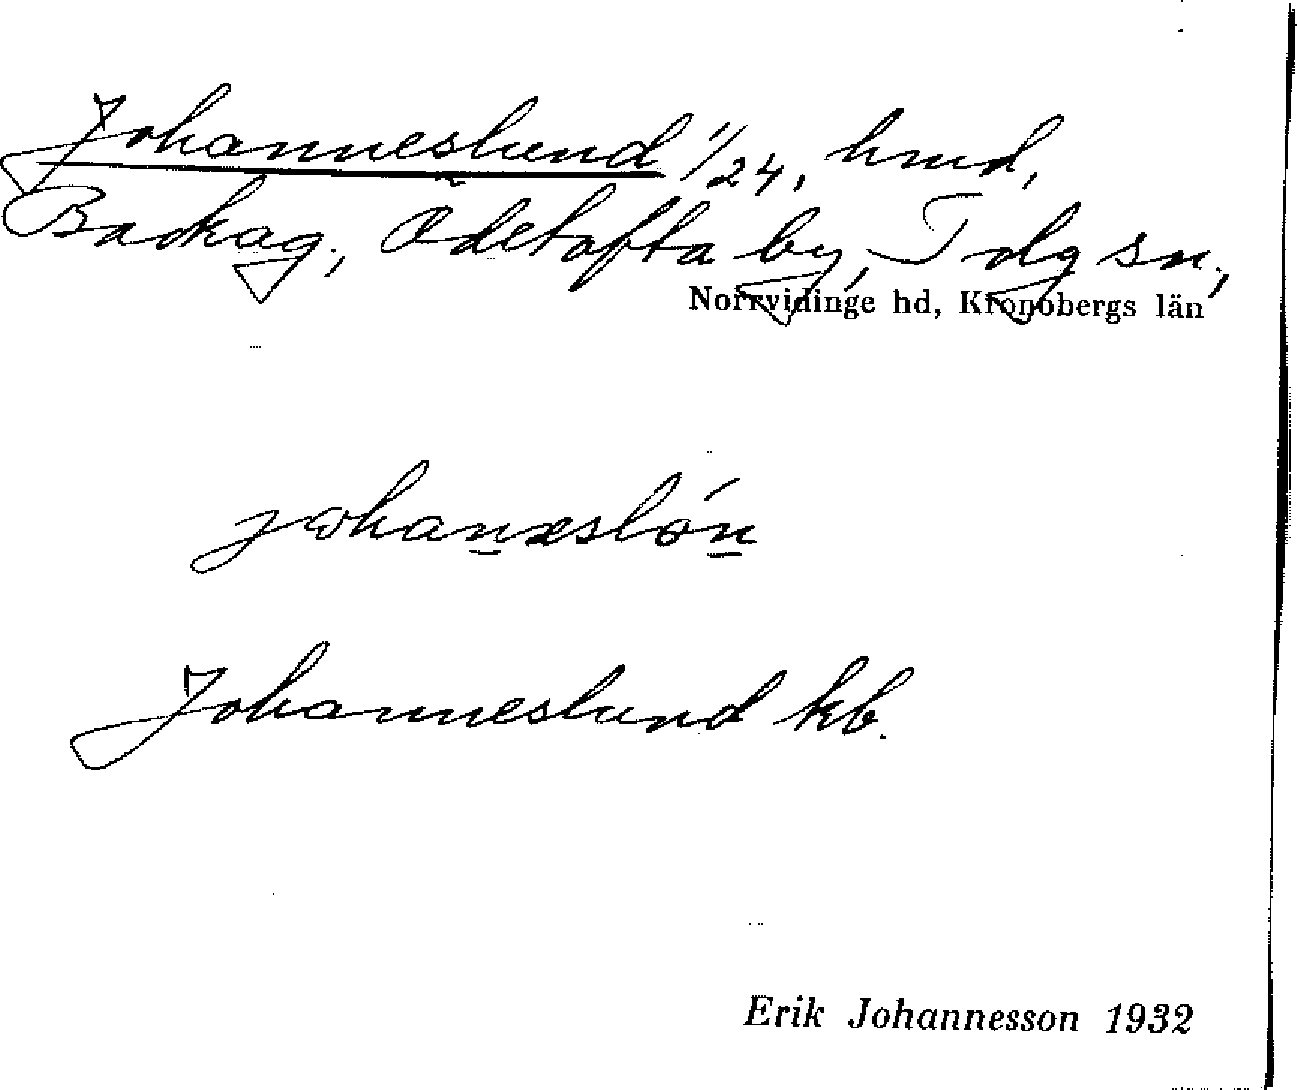 Johanneslund 1/24, hmd,
Backag., Ödetofta by, Tolg sn,
Norrvidinge hd, Kronobergs län
johanæslón
Johanneslund kb.
Erik Johannesson 1932